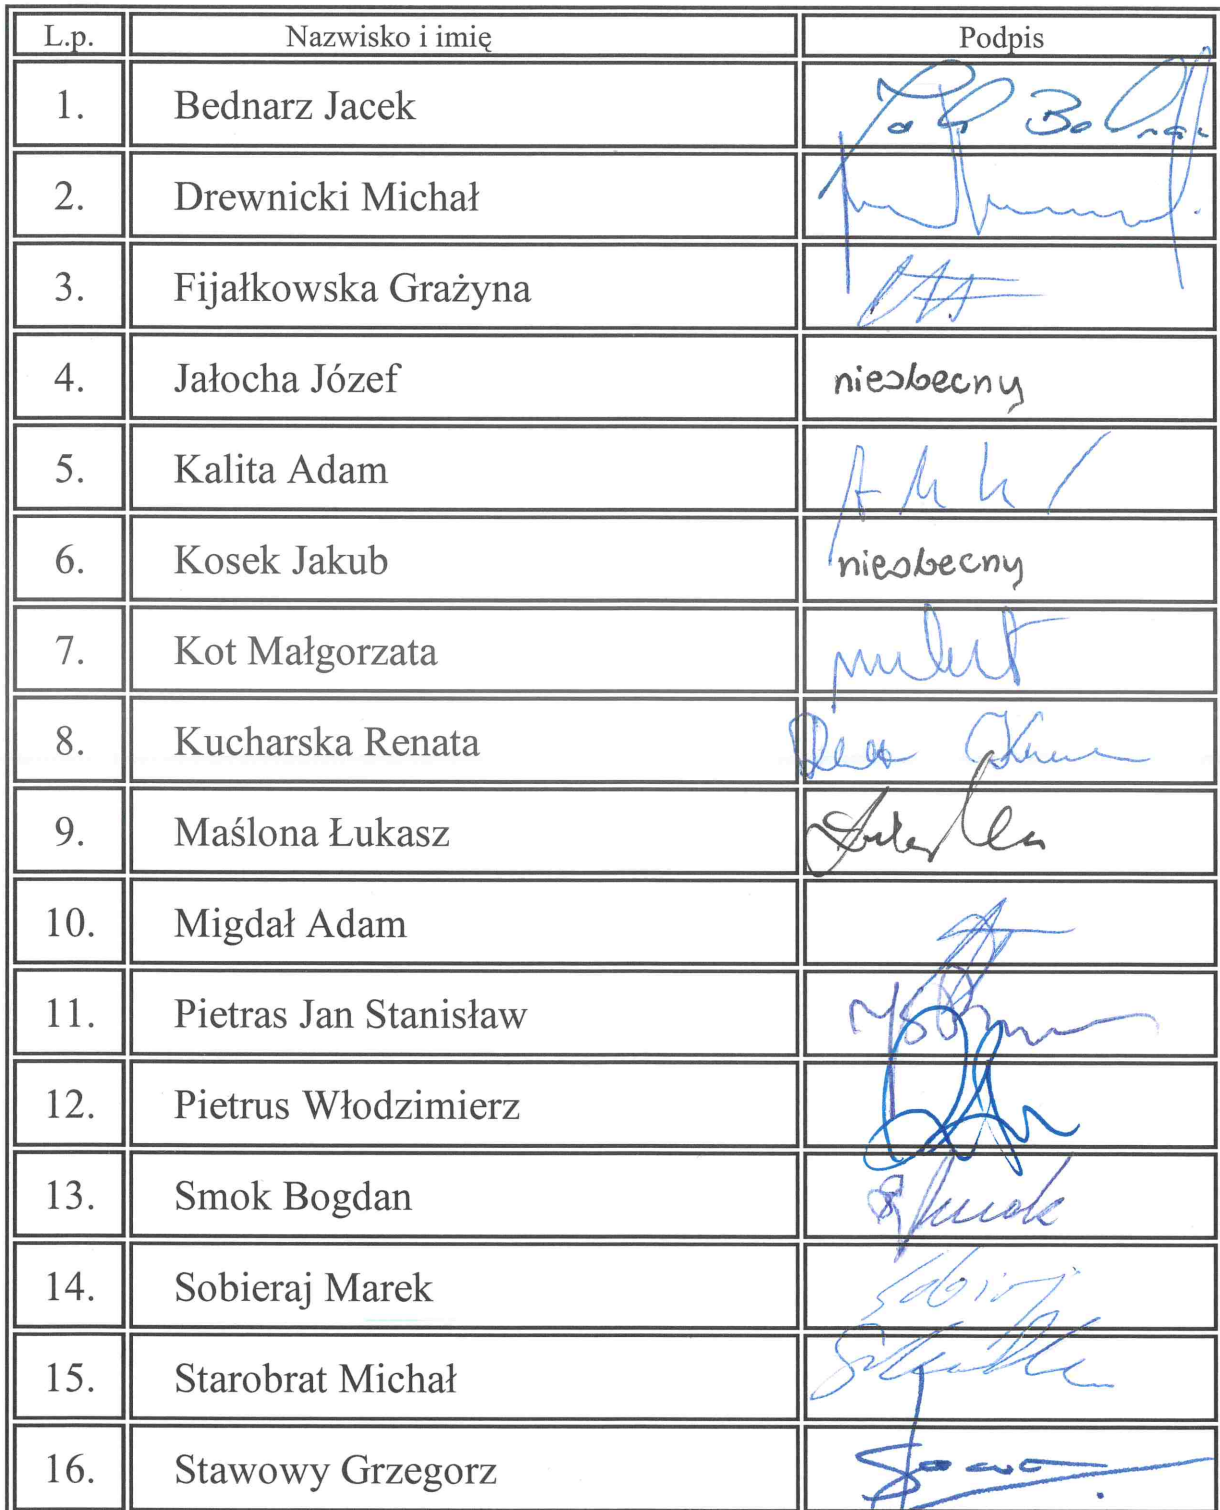 L.p. Nazwisko i imię Podpis
1. Bednarz Jacek
2. Drewnicki Michał
3. Fijałkowska Grażyna
4. Jałocha Józef nieobecny
5. Kalita Adam
6. Kosek Jakub nieobecny
7. Kot Małgorzata
8. Kucharska Renata
9. Maślona Łukasz
10. Migdał Adam
11. Pietras Jan Stanisław
12. Pietrus Włodzimierz
13. Smok Bogdan
14. Sobieraj Marek
15. Starobrat Michał
16. Stawowy Grzegorz